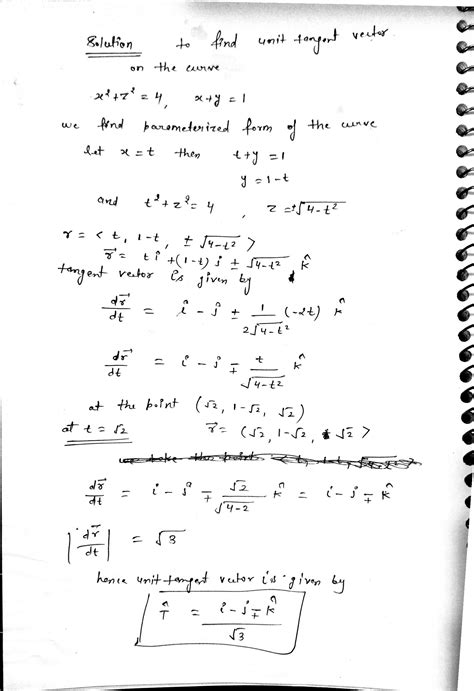 Solution to find unit tangent vector
on the curve
x²+z² = 4, x+y = 1
we find parameterized form of the curve
let x = t then t+y = 1
y = 1-t
and t²+z² = 4, z = ±√4-t²
r = < t, 1-t, ± √4-t² >
r⃗ = t î + (1-t) ĵ ± √4-t² k̂
tangent vector is given by
dr⃗/dt = î - ĵ ± 1/2√4-t² (-2t) k̂
dr⃗/dt = i - ĵ ∓ t/√4-t² k̂
at the point (√2, 1-√2, √2)
at t = √2 r⃗ = (√2, 1-√2, √2 >
dr⃗/dt = i - ĵ ∓ √2/√4-2 k̂ = i - j ∓ k̂
|dr⃗/dt| = √3
hence unit tangent vector is given by
T̂ = i - j ∓ k̂/√3